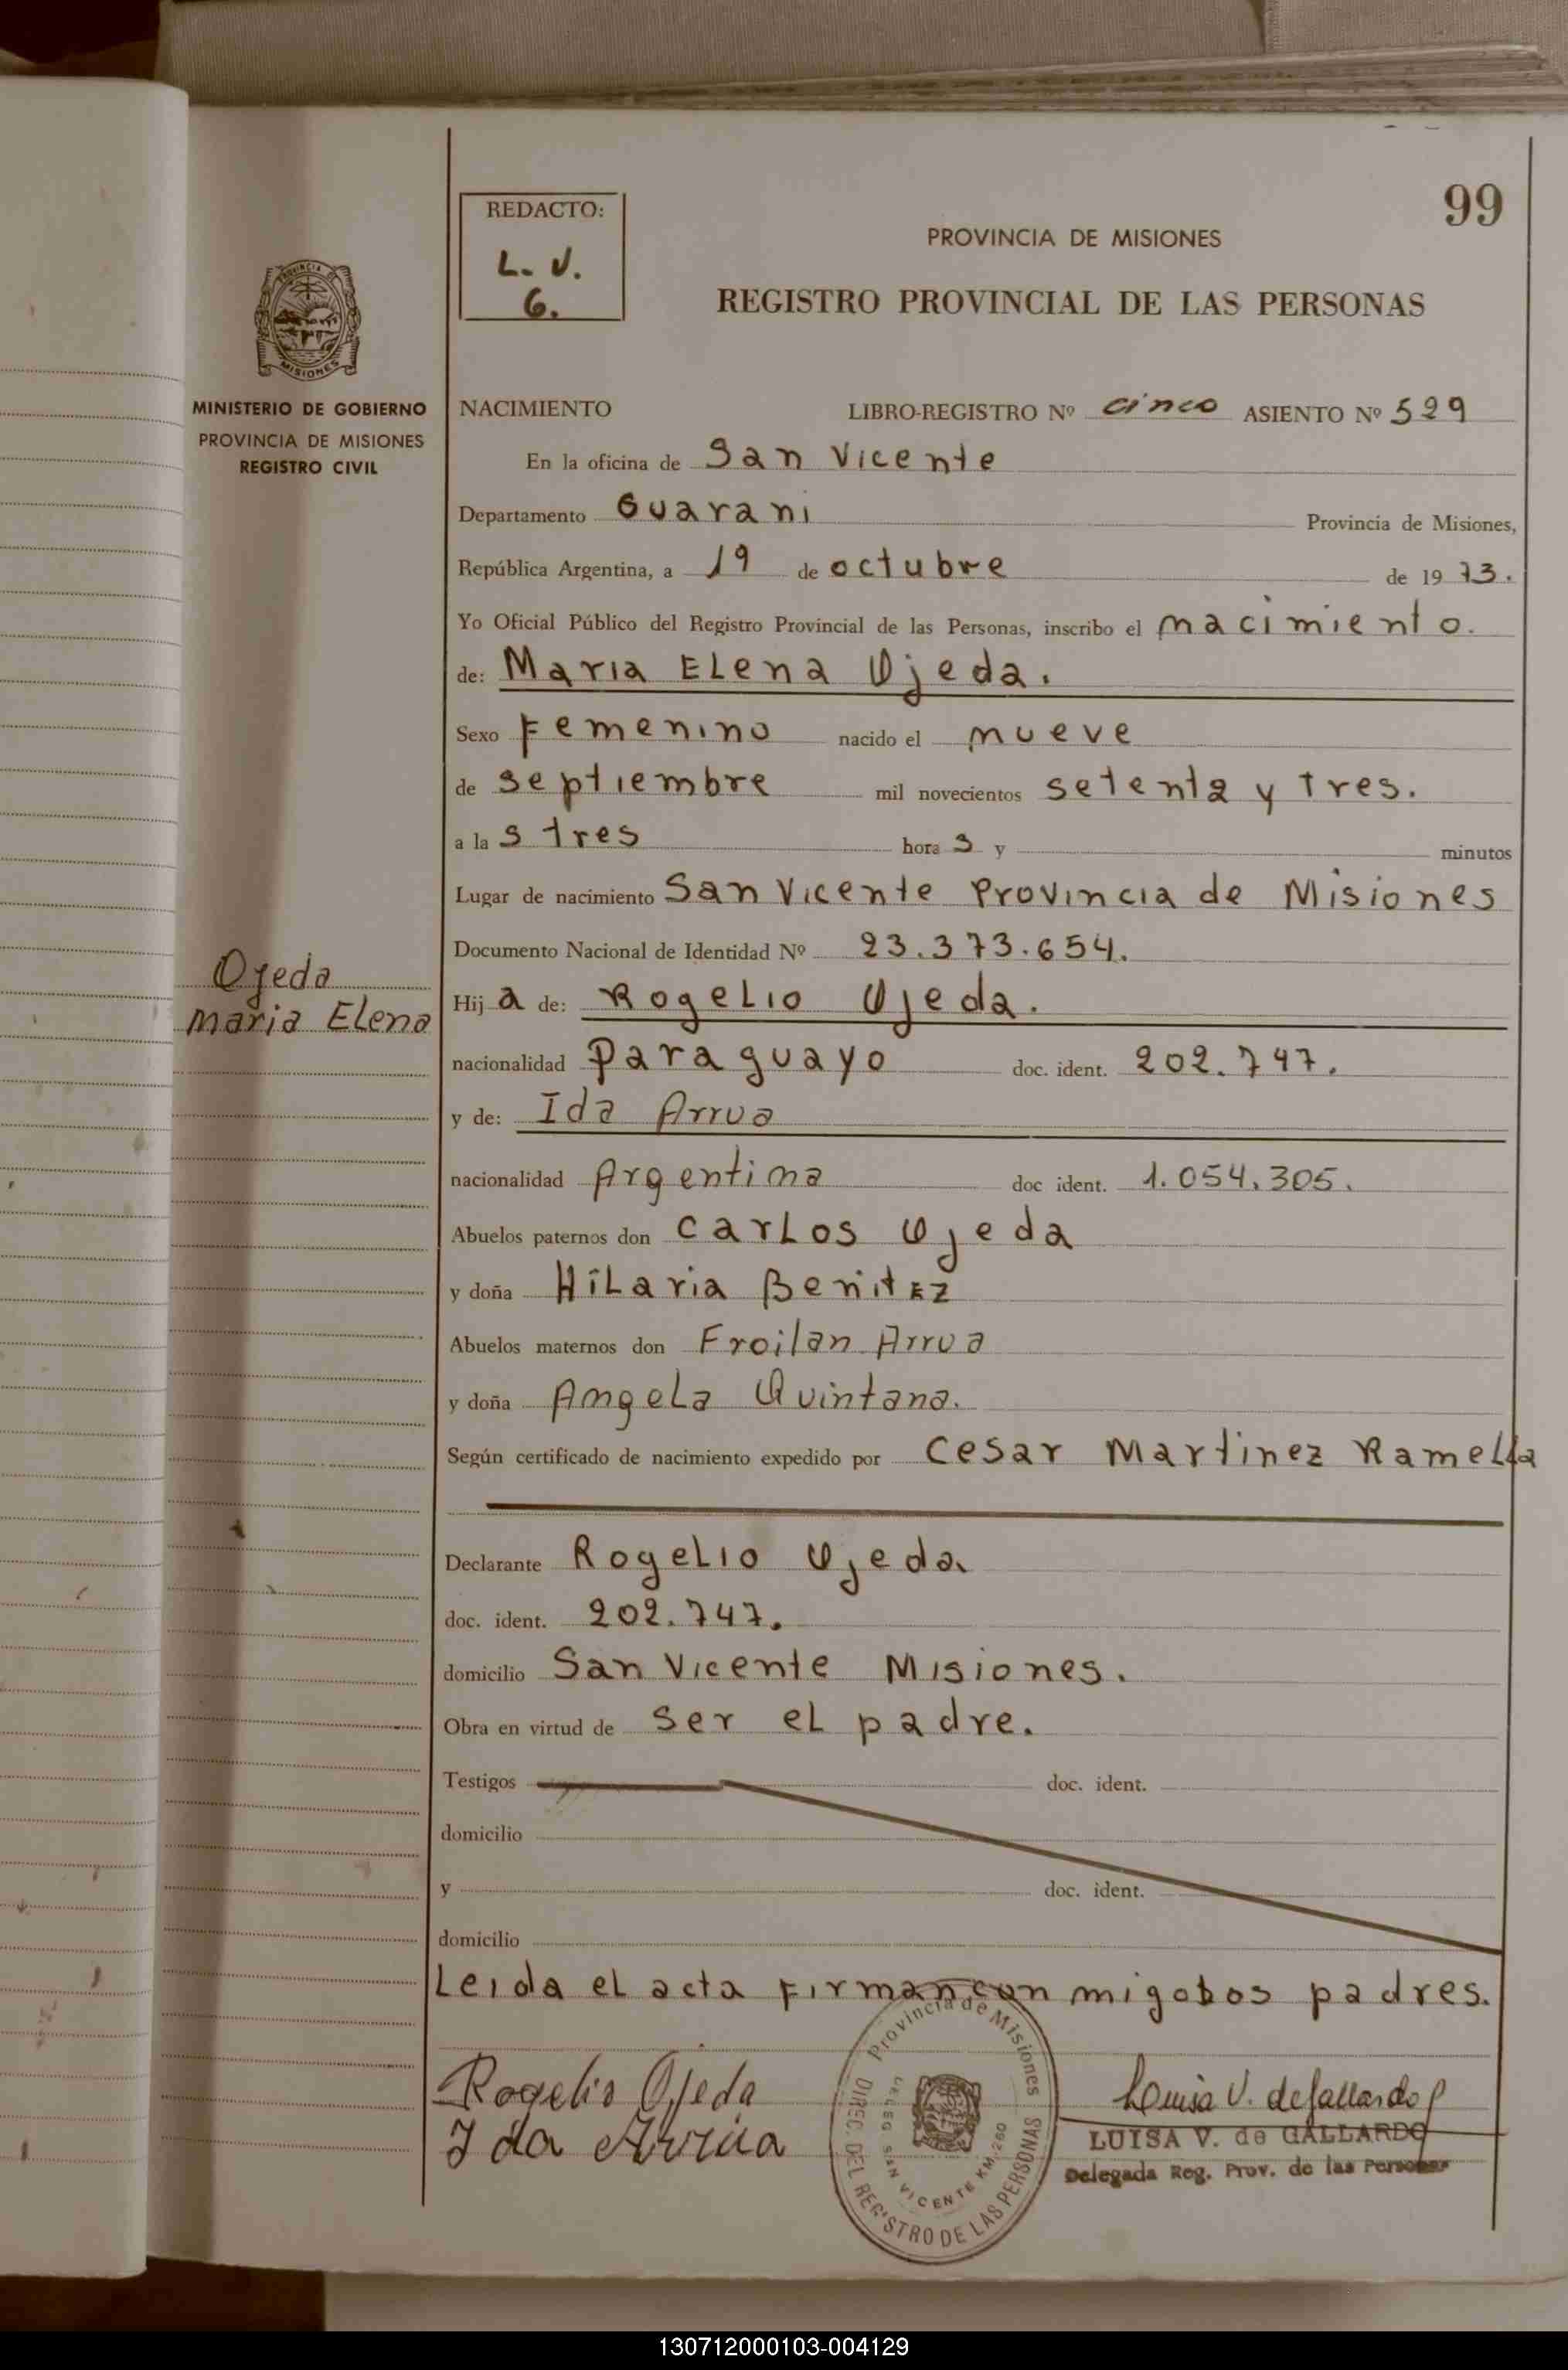 99
REDACTO:
L. V.
G.
PROVINCIA DE MISIONES
REGISTRO PROVINCIAL DE LAS PERSONAS
MINISTERIO DE GOBIERNO
PROVINCIA DE MISIONES
REGISTRO CIVIL
NACIMIENTO LIBRO-REGISTRO Nº cinco ASIENTO Nº 529
En la oficina de San Vicente
Departamento Guarani Provincia de Misiones,
República Argentina, a 19 de octubre de 19 73.
Yo Oficial Público del Registro Provincial de las Personas, inscribo el nacimiento.
de: Maria Elena Ojeda.
Sexo Femenino nacido el nueve
de septiembre mil novecientos setenta y tres.
a la s tres hora s y minutos
Lugar de nacimiento San Vicente Provincia de Misiones
Documento Nacional de Identidad Nº 23.373.654.
Ojeda
Maria Elena
Hij a de: Rogelio Ojeda.
nacionalidad paraguayo doc. ident. 202.747.
y de: Ida Arrua
nacionalidad Argentina doc ident. 1.054.305.
Abuelos paternos don Carlos Ojeda
y doña Hilaria Benitez
Abuelos maternos don Froilan Arrua
y doña Angela Quintana.
Según certificado de nacimiento expedido por Cesar Martinez Ramella
Declarante Rogelio Ojeda
doc. ident. 202.747.
domicilio San Vicente Misiones.
Obra en virtud de ser el padre.
Testigos doc. ident.
domicilio
y doc. ident.
domicilio
Leida el acta firman con migo los padres.
Rogelio Ojeda
Ida Arrua
Provincia de Misiones
DIREC. DEL REGISTRO DE LAS PERSONAS
DELEG. SAN VICENTE KM. 260
Luisa V. de Gallardo
LUISA V. de GALLARDO
Delegada Reg. Prov. de las Personas
130712000103-004129